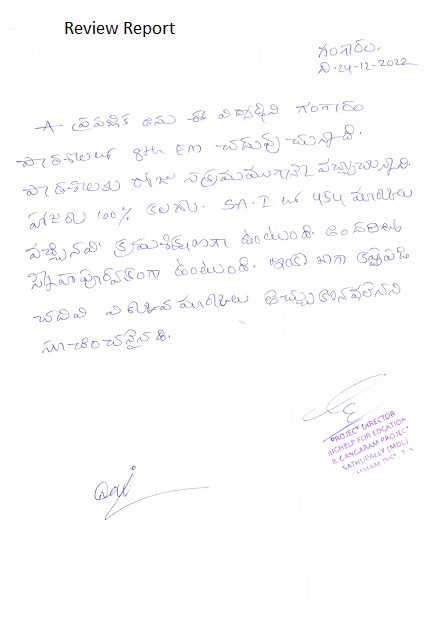 Review Report
గంగారం,
ది. 24-12-2022
A. ప్రవళ్లిక అను ఈ విద్యార్థిని గంగారం
పాఠశాలలో 8th EM చదువుచున్నది.
పాఠశాలకు రోజు సక్రమముగానే వచ్చుచున్నది.
హాజరు 100% కలదు. SA.I లో 454 మార్కులు
వచ్చినవి. క్రమశిక్షణగా ఉంటుంది. అందరితో
స్నేహపూర్వకంగా ఉంటుంది. ఇంకా బాగా కష్టపడి
చదివి ఎక్కువ మార్కులు తెచ్చుకొనవలెనని
సూచించనైనది.
PROJECT DIRECTOR
HIGHELP FOR EDCATION
B. GANGARAM PROJEC
SATHUPALLY (MDL)